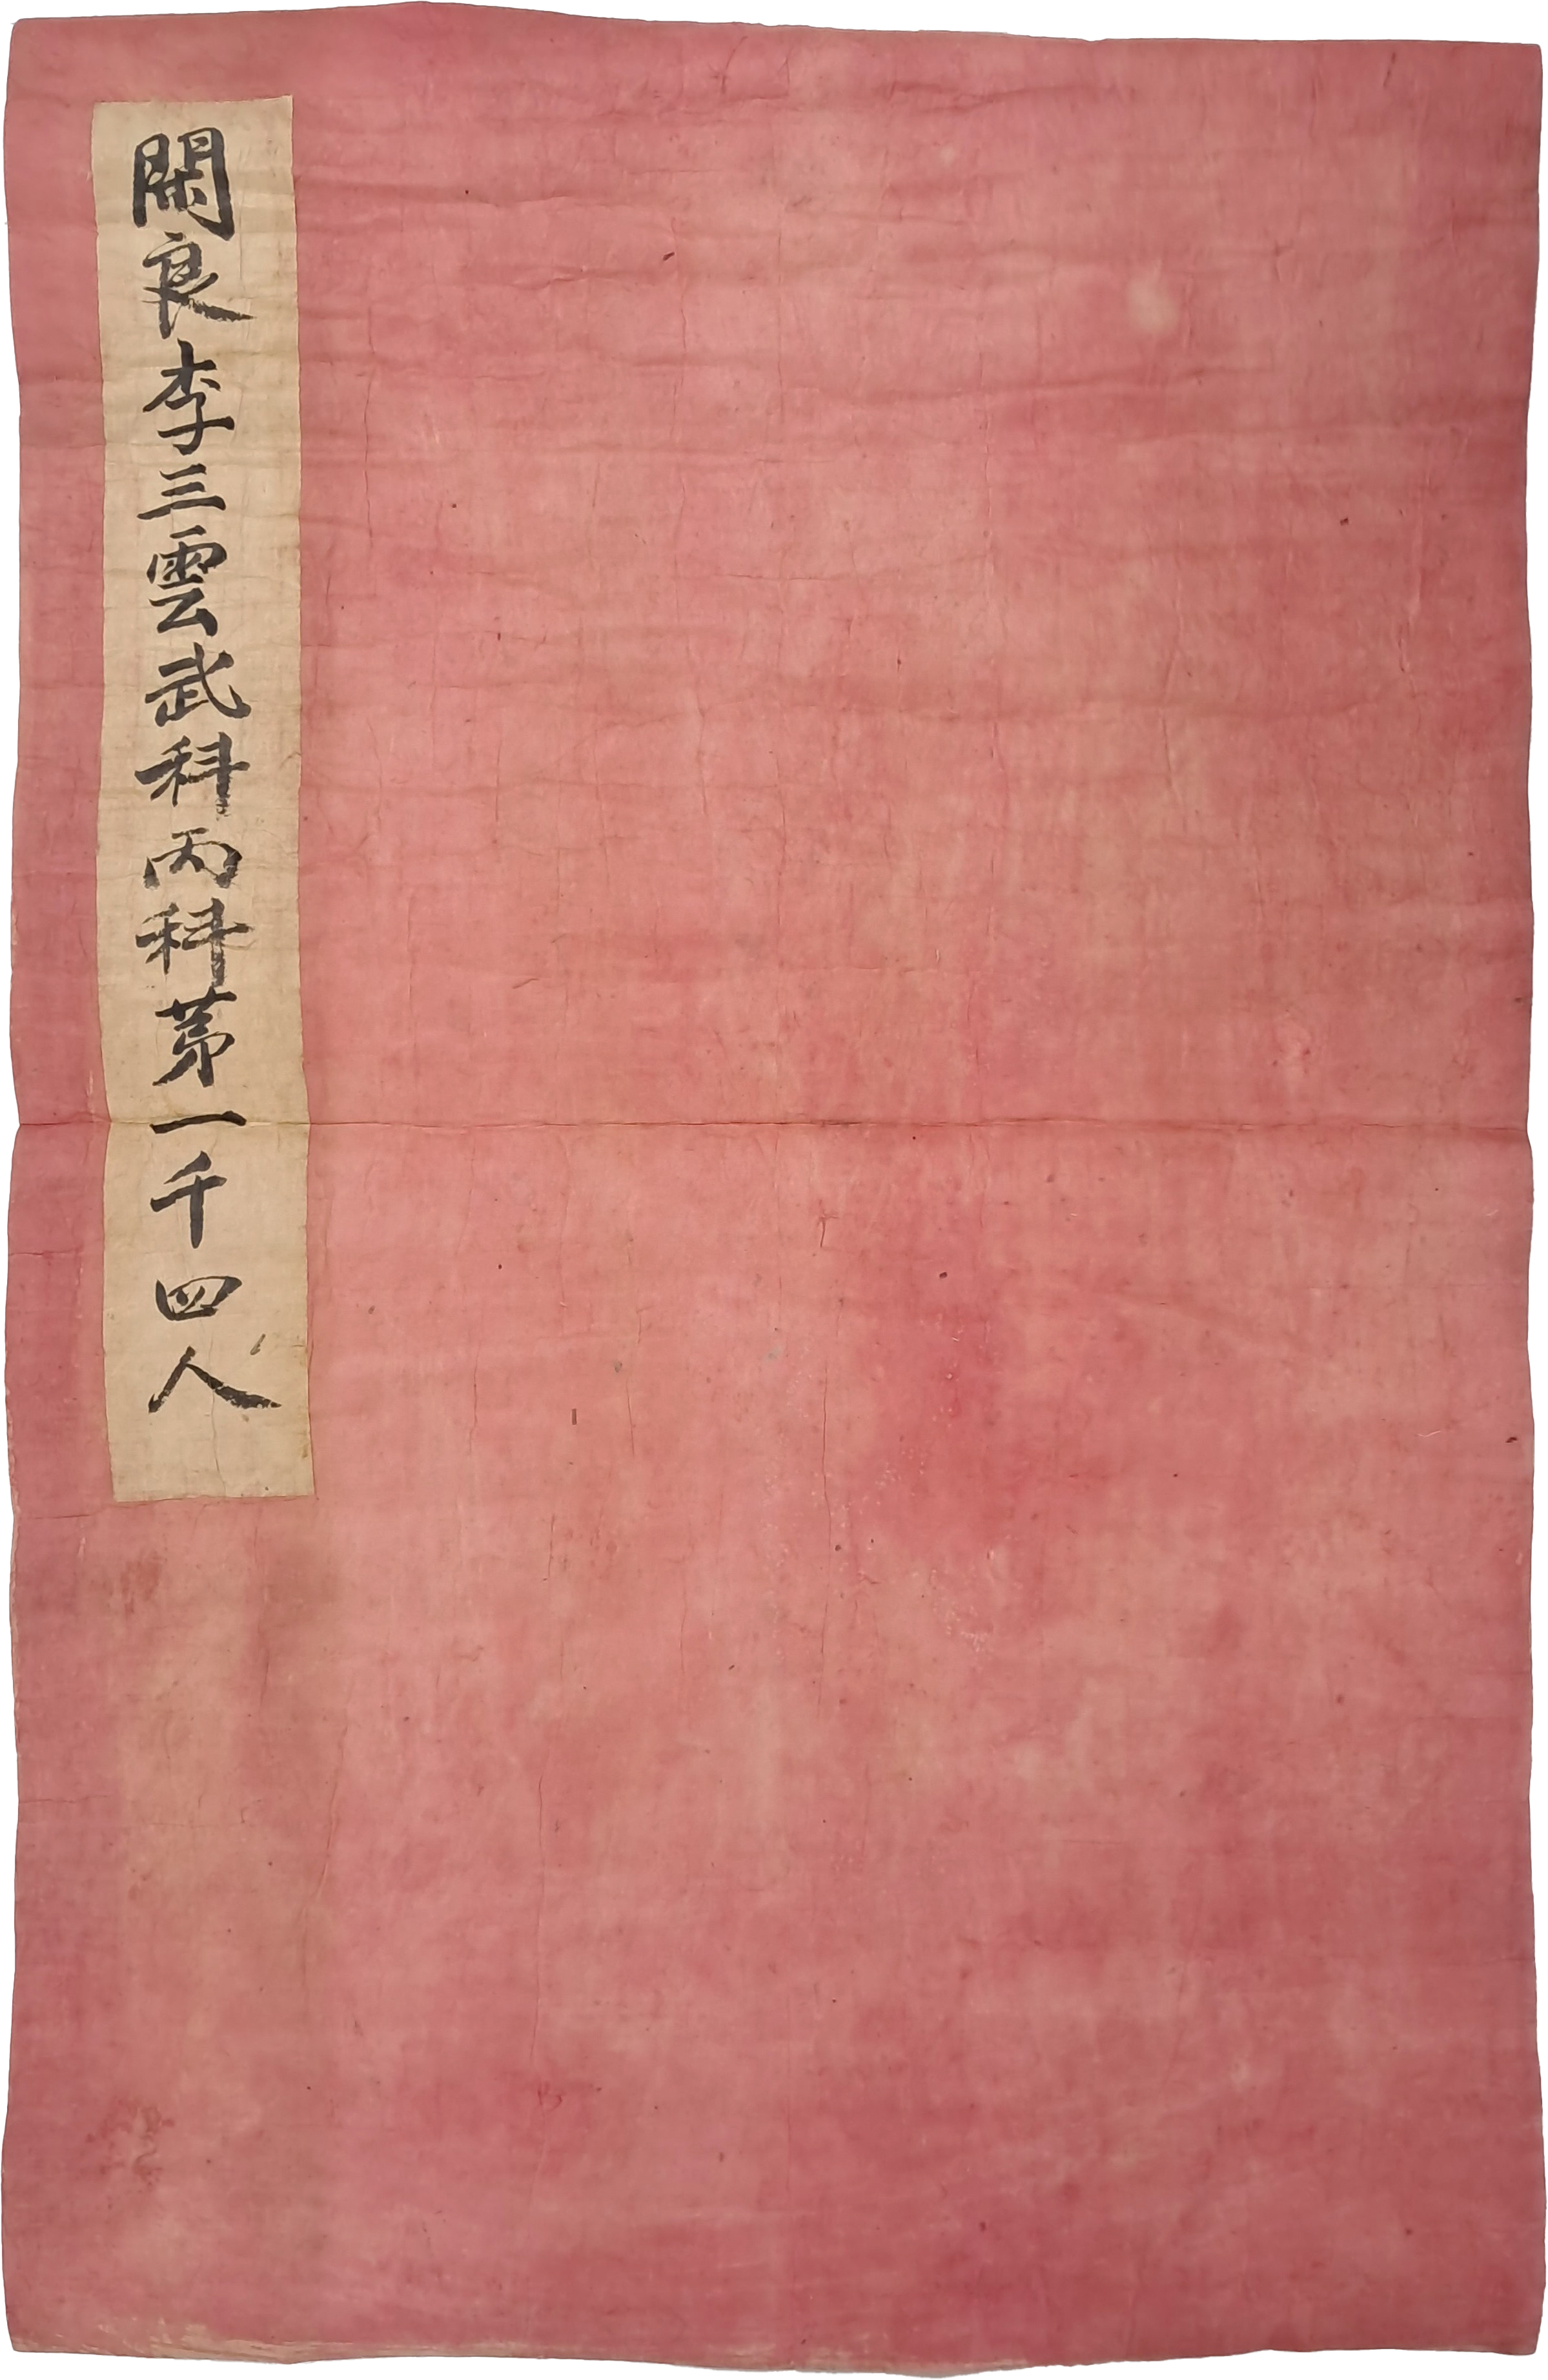 閑良李三雲武科丙科苐一千四人